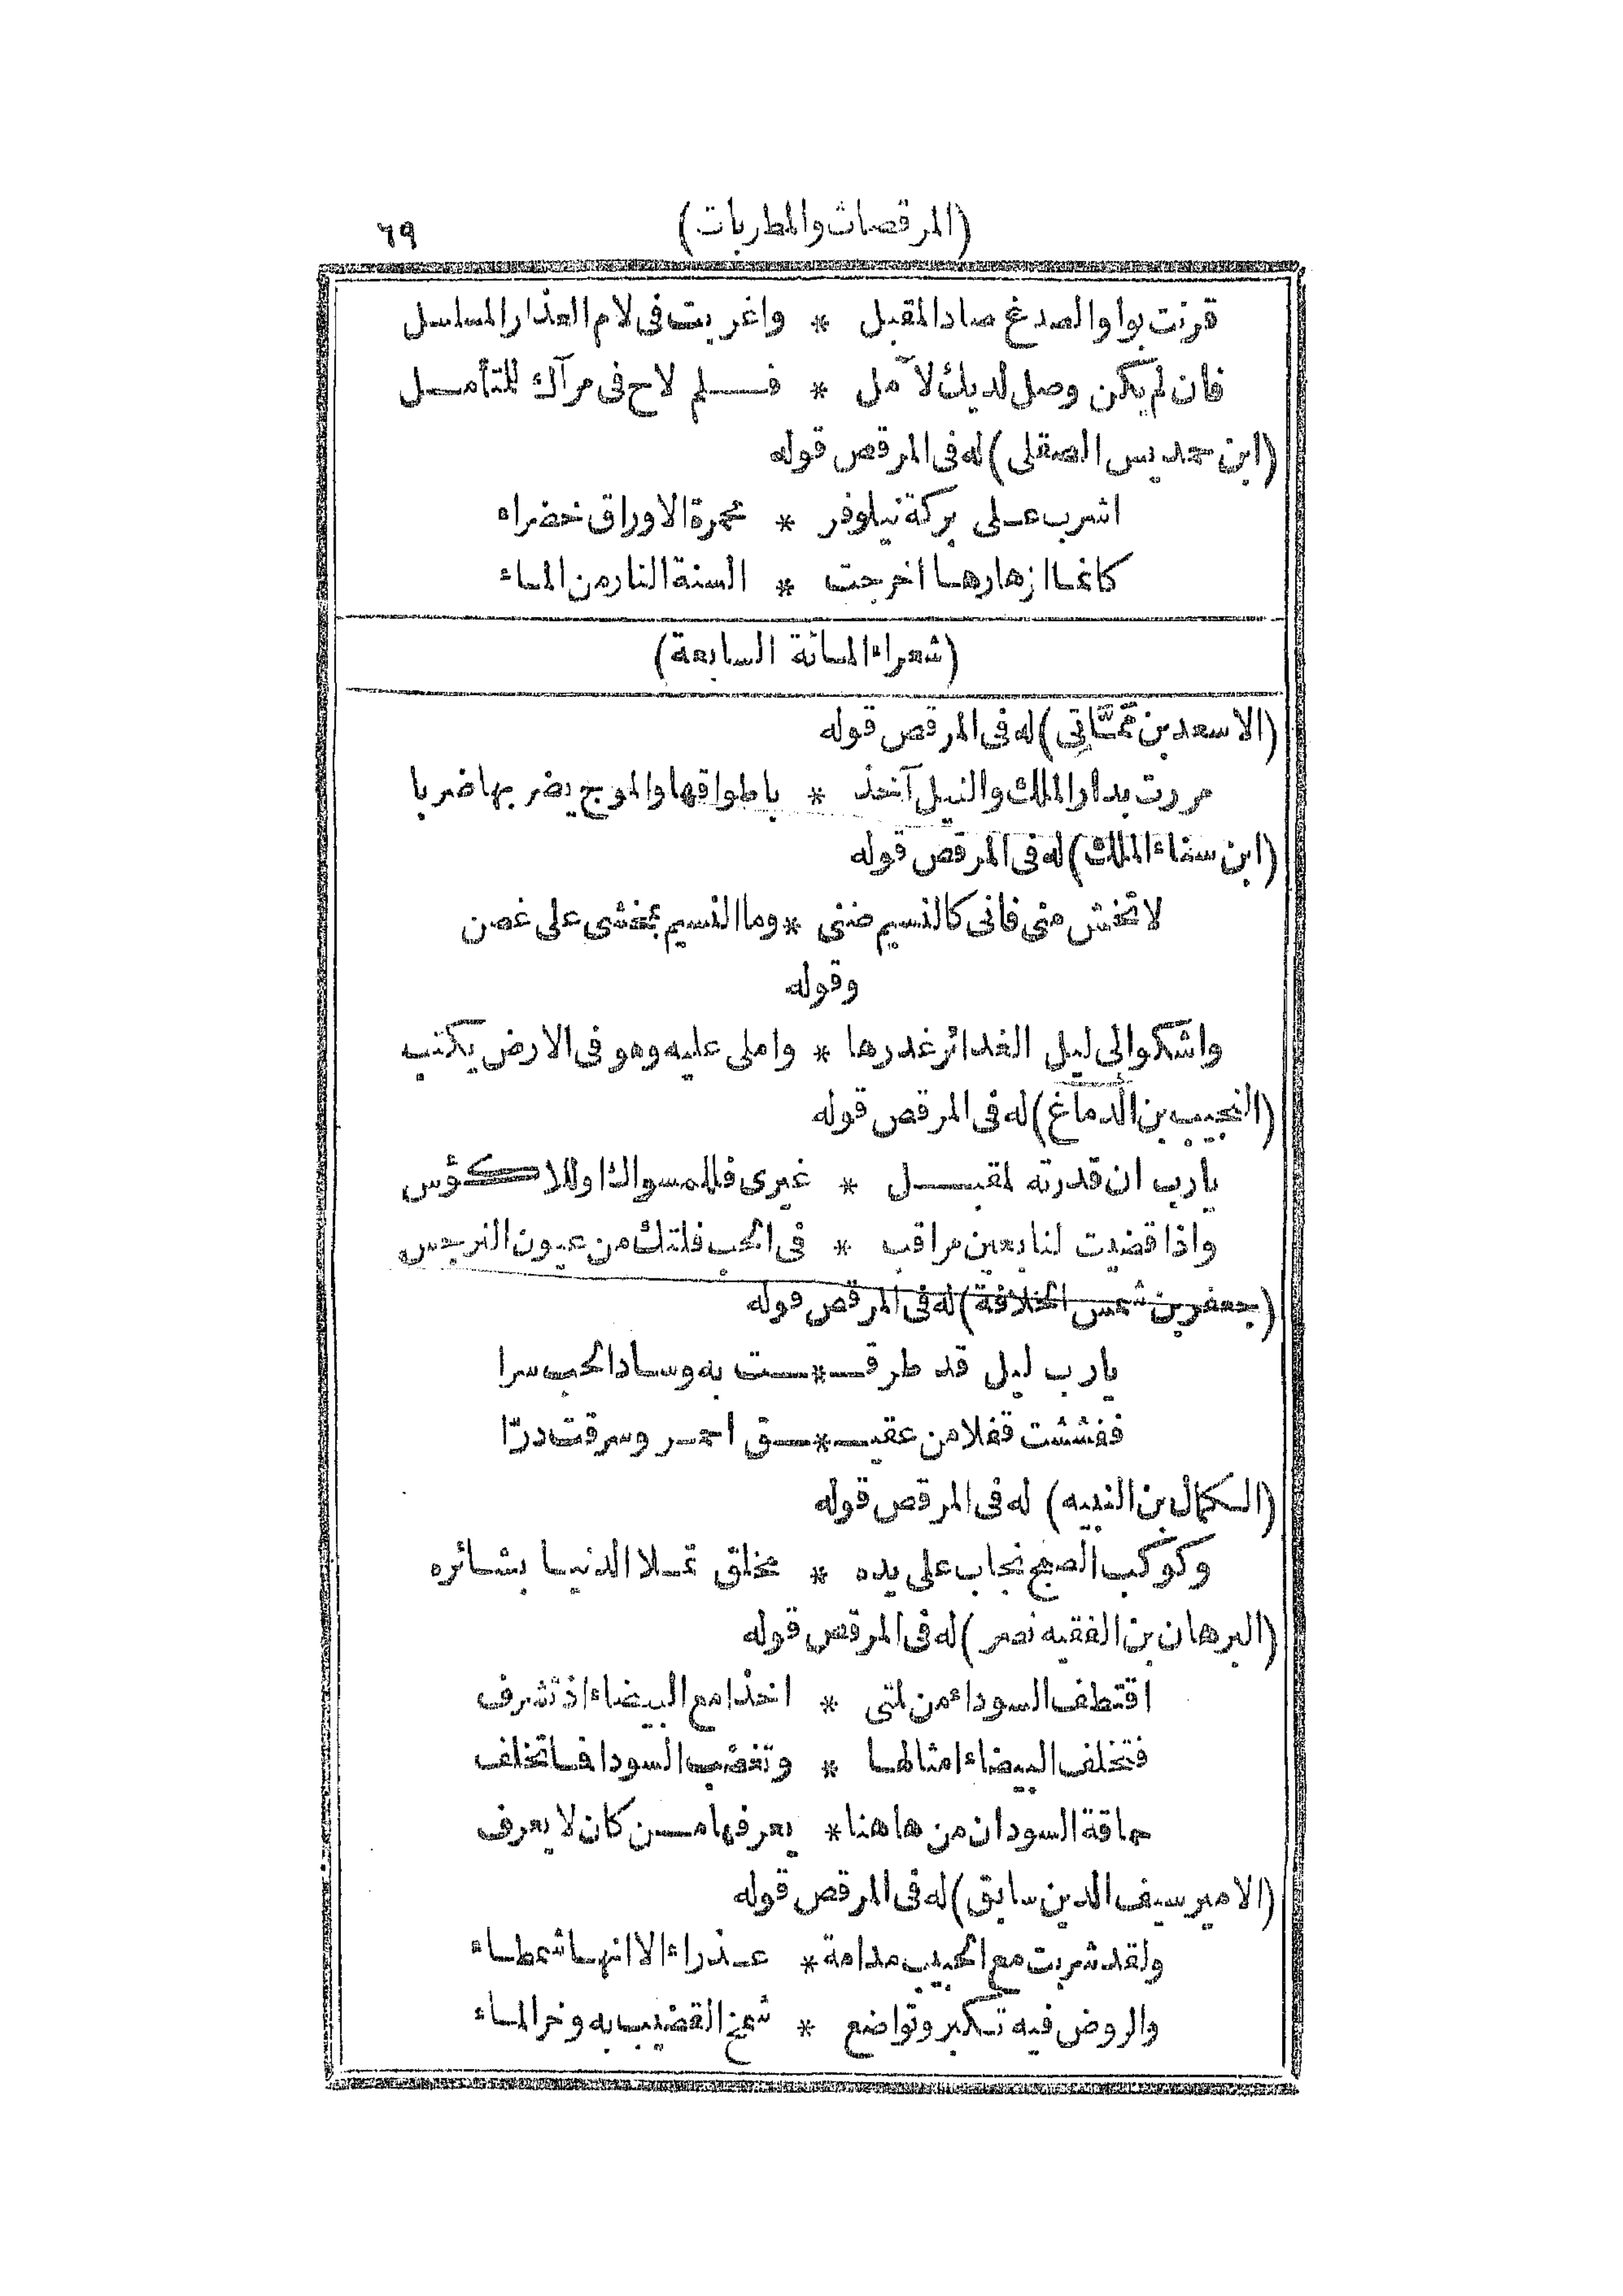 (المرقصات والمطربات) ٦٩
قرنت بواو الصدغ صاد المقبل * واغربت فى لام العذار المسلسل
فان لم يكن وصل لديك لآمل * فلم لاح فى مرآك للمتأمل
(ابن حمديس الصقلى) له فى المرقص قوله
اشرب على بركة نيلوفر * محمرة الاوراق خضراء
كانما ازهارها اخرجت * السنة النار من الماء
(شعراء المائة السابعة)
(الاسعد بن ممَّاتِى) له فى المرقص قوله
مررت بدار الملك والنيل آخذ * باطواقها والموج يضربها ضربا
(ابن سناء الملك) له فى المرقص قوله
لا تخش منى فانى كالنسيم ضنى * وما النسيم بمخشى على غصن
وقوله
واشكو الى ليل الغدائر غدرها * واملى عليه وهو فى الارض يكتب
(النجيب بن الدماغ) له فى المرقص قوله
يارب ان قدرته لمقبل * غيرى فللمسواك او للاكؤس
واذا قضيت لنا بعين مراقب * فى الحب فلتك من عيون النرجس
(جعفر بن شمس الخلافة) له فى المرقص قوله
يارب ليل قد طرقـ * ـت به وساد الحب سرا
ففششت قفلا من عقيـ * ـق احمر وسرقت درّا
(الكمال بن النبيه) له فى المرقص قوله
وكوكب الصبح نجاب على يده * مخلق تملا الدنيا بشائره
(البرهان بن الفقيه نصر) له فى المرقص قوله
اقتطف السوداء من لمتى * اخذا مع البيضاء اذ تشرف
فتخلف البيضاء امثالها * وتغضب السودا فما تخلف
حماقة السودان من هاهنا * يعرفها من كان لا يعرف
(الامير سيف الدين سابق) له فى المرقص قوله
ولقد شربت مع الحبيب مدامة * عذراء الا انها شمطاء
والروض فيه تكبر وتواضع * شمخ القضيب به وخر الماء